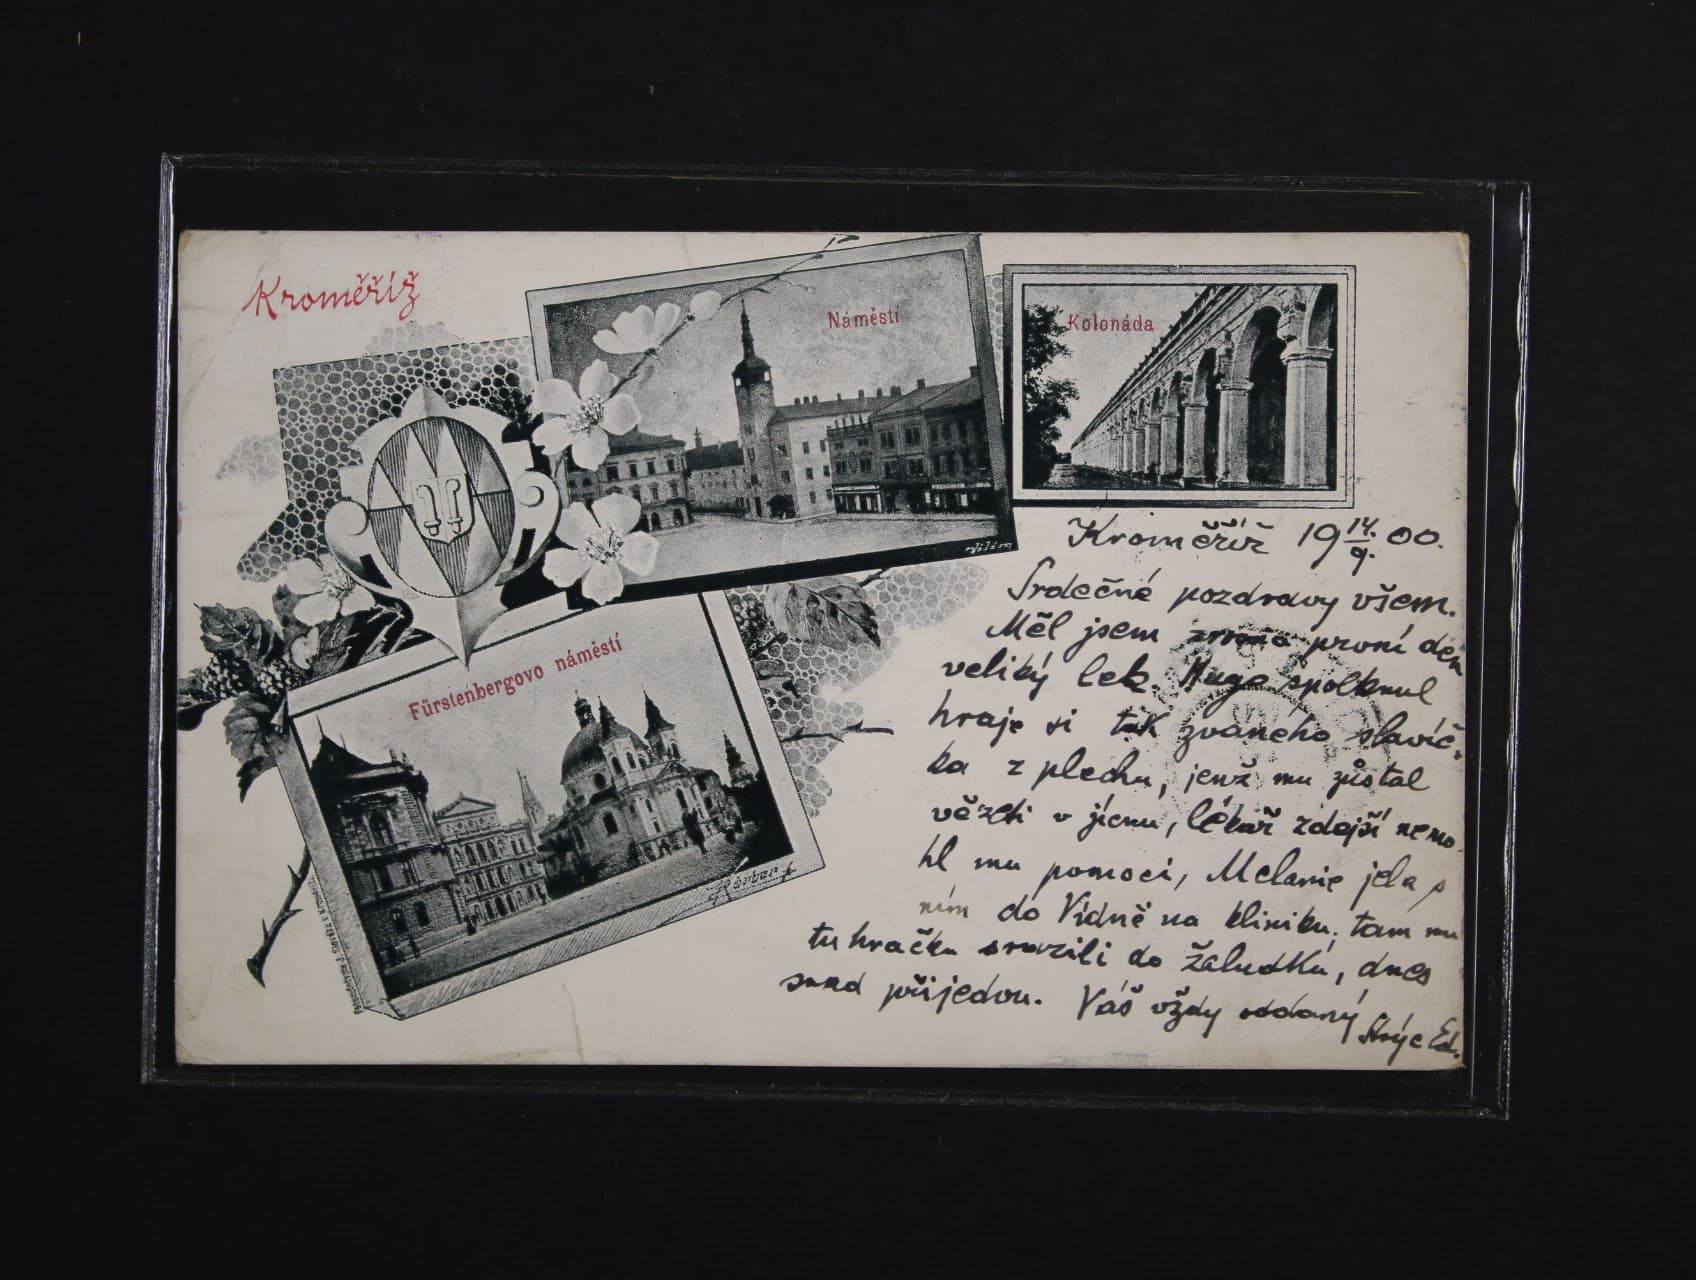 Kroměříž
Náměstí
Kolonáda
Fürstenbergovo náměstí
Kroměříž 19 14./9. 00.
Srdečné pozdravy všem.
Měl jsem první den
veliký lek. Hugo spolknul
hraje si tak zvaného slavíč-
ka z plechu, jenž mu zůstal
vězeti v jícnu, lékař zdejší nemo-
hl mu pomoci, Melanie jela s
ním do Vídně na kliniku, tam mu
tu hračku srazili do žaludku, dnes
snad přijedou. Váš vždy oddaný
Strýc Ed.